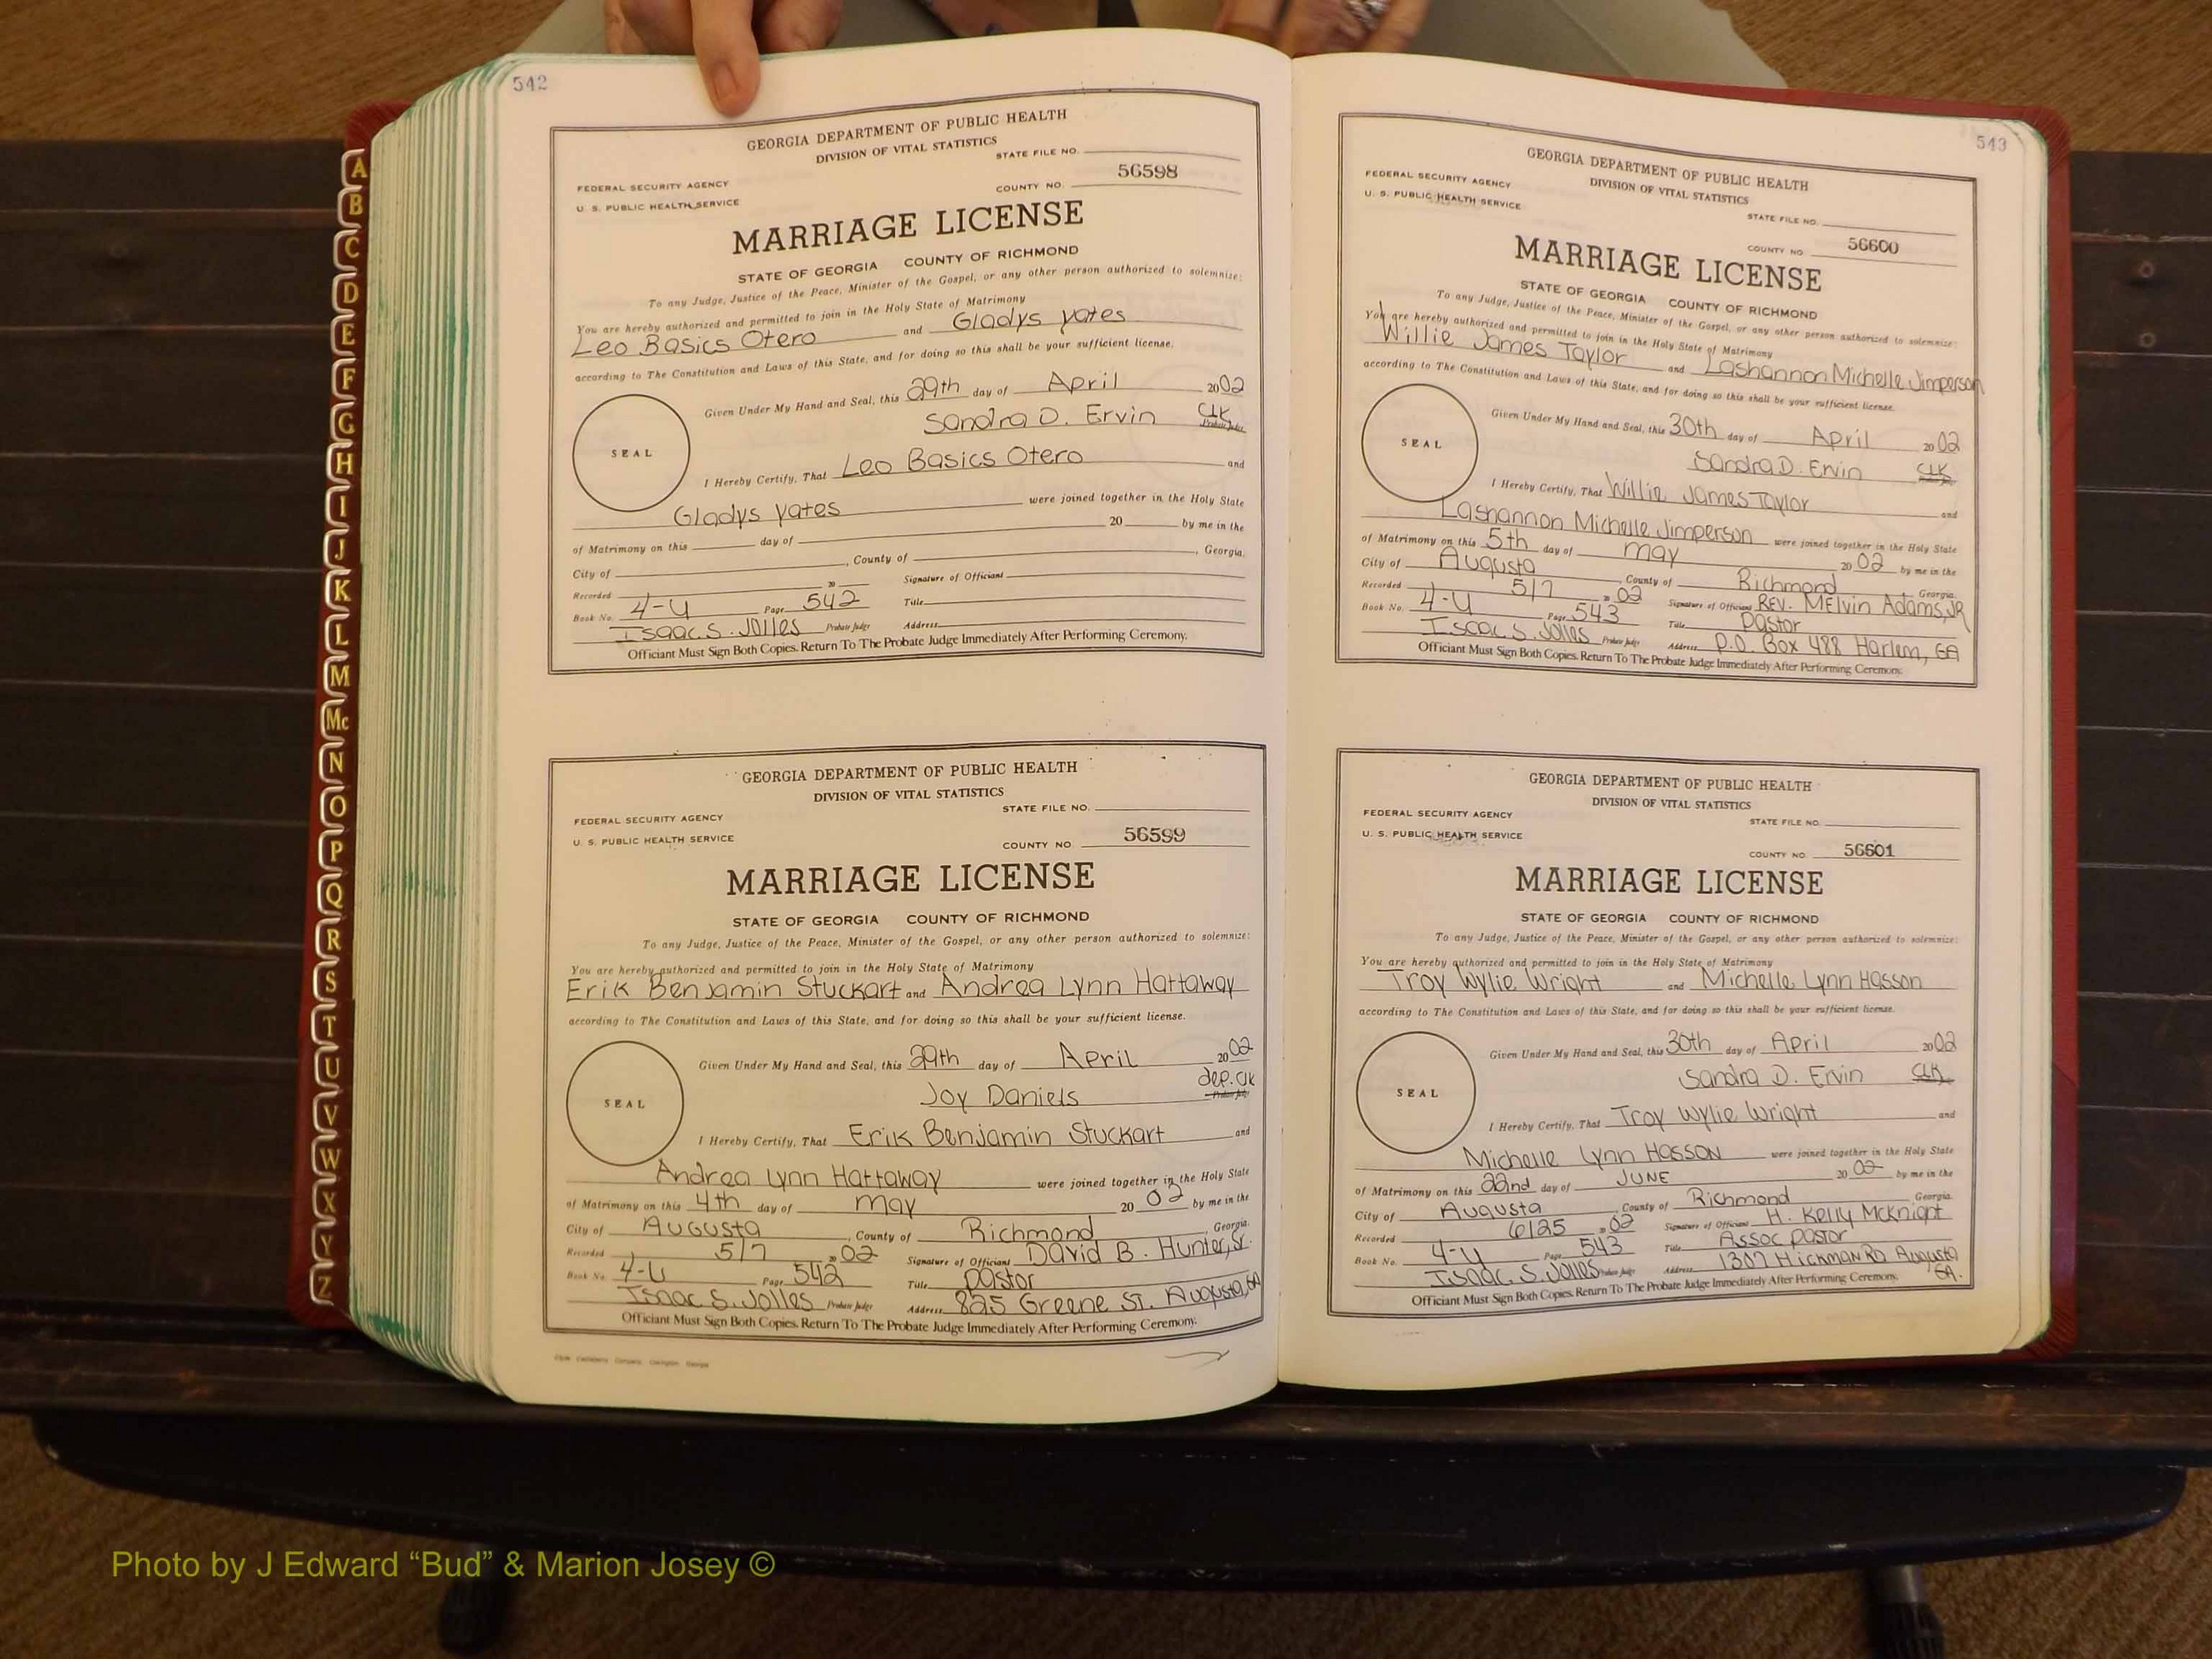 542
GEORGIA DEPARTMENT OF PUBLIC HEALTH
DIVISION OF VITAL STATISTICS
STATE FILE NO.
FEDERAL SECURITY AGENCY
COUNTY NO. 56598
U. S. PUBLIC HEALTH SERVICE
MARRIAGE LICENSE
STATE OF GEORGIA COUNTY OF RICHMOND
To any Judge, Justice of the Peace, Minister of the Gospel, or any other person authorized to solemnize:
You are hereby authorized and permitted to join in the Holy State of Matrimony
Leo Basics Otero and Gladys Yates
according to The Constitution and Laws of this State, and for doing so this shall be your sufficient license.
Given Under My Hand and Seal, this 29th day of April 2002
Sandra D. Ervin CLK
SEAL
I Hereby Certify, That Leo Basics Otero and
Gladys Yates were joined together in the Holy State
of Matrimony on this day of 20 by me in the
City of , County of , Georgia.
Recorded 20 Signature of Officiant
Book No. 4-U Page 542 Title
Isaac S. Jolles Probate Judge Address
Officiant Must Sign Both Copies. Return To The Probate Judge Immediately After Performing Ceremony.
GEORGIA DEPARTMENT OF PUBLIC HEALTH
DIVISION OF VITAL STATISTICS
STATE FILE NO.
FEDERAL SECURITY AGENCY
COUNTY NO 56599
U. S. PUBLIC HEALTH SERVICE
MARRIAGE LICENSE
STATE OF GEORGIA COUNTY OF RICHMOND
To any Judge, Justice of the Peace, Minister of the Gospel, or any other person authorized to solemnize:
You are hereby authorized and permitted to join in the Holy State of Matrimony
Erik Benjamin Stuckart and Andrea Lynn Hattaway
according to The Constitution and Laws of this State, and for doing so this shall be your sufficient license.
Given Under My Hand and Seal, this 29th day of April 2002
Joy Daniels dep. clk
SEAL
I Hereby Certify, That Erik Benjamin Stuckart and
Andrea Lynn Hattaway were joined together in the Holy State
of Matrimony on this 4th day of May 2002 by me in the
City of Augusta, County of Richmond, Georgia.
Recorded 5/7 20 02 Signature of Officiant David B. Hunter, Sr.
Book No 4-U Page 542 Title Pastor
Isaac S. Jolles Probate Judge Address 825 Greene St. Augusta, GA
Officiant Must Sign Both Copies. Return To The Probate Judge Immediately After Performing Ceremony.
543
GEORGIA DEPARTMENT OF PUBLIC HEALTH
DIVISION OF VITAL STATISTICS
FEDERAL SECURITY AGENCY
U. S. PUBLIC HEALTH SERVICE
STATE FILE NO.
COUNTY NO 56600
MARRIAGE LICENSE
STATE OF GEORGIA COUNTY OF RICHMOND
To any Judge, Justice of the Peace, Minister of the Gospel, or any other person authorized to solemnize:
You are hereby authorized and permitted to join in the Holy State of Matrimony
Willie James Taylor and Lashannon Michelle Jimperson
according to The Constitution and Laws of this State, and for doing so this shall be your sufficient license.
Given Under My Hand and Seal, this 30th day of April 2002
Sandra D. Ervin CLK
SEAL
I Hereby Certify, That Willie James Taylor and
Lashannon Michelle Jimperson were joined together in the Holy State
of Matrimony on this 5th day of May 2002 by me in the
City of Augusta, County of Richmond Georgia.
Recorded 5/7 20 02 Signature of Officiant Rev. Melvin Adams, JR
Book No. 4-U Page 543 Title Pastor
Isaac S. Jolles Probate Judge Address P.O. Box 488 Harlem, GA
Officiant Must Sign Both Copies. Return To The Probate Judge Immediately After Performing Ceremony.
GEORGIA DEPARTMENT OF PUBLIC HEALTH
DIVISION OF VITAL STATISTICS
FEDERAL SECURITY AGENCY
STATE FILE NO.
U. S. PUBLIC HEALTH SERVICE
COUNTY NO. 56601
MARRIAGE LICENSE
STATE OF GEORGIA COUNTY OF RICHMOND
To any Judge, Justice of the Peace, Minister of the Gospel, or any other person authorized to solemnize:
You are hereby authorized and permitted to join in the Holy State of Matrimony
Troy Wylie Wright and Michelle Lynn Hasson
according to The Constitution and Laws of this State, and for doing so this shall be your sufficient license.
Given Under My Hand and Seal, this 30th day of April 2002
Sandra D. Ervin CLK
SEAL
I Hereby Certify, That Troy Wylie Wright and
Michelle Lynn Hasson were joined together in the Holy State
of Matrimony on this 22nd day of JUNE 2002 by me in the
City of Augusta, County of Richmond Georgia.
Recorded 6/25 20 02 Signature of Officiant H. Kelly McKnight
Book No. 4-U Page 543 Title Assoc Pastor
Isaac S. Jolles Probate Judge Address 1307 Hickman Rd Augusta GA.
Officiant Must Sign Both Copies. Return To The Probate Judge Immediately After Performing Ceremony.
A
B
C
D
E
F
G
H
I
J
K
L
M
Mc
N
O
P
Q
R
S
T
U
V
W
X
Y
Z
Photo by J Edward “Bud” & Marion Josey ©